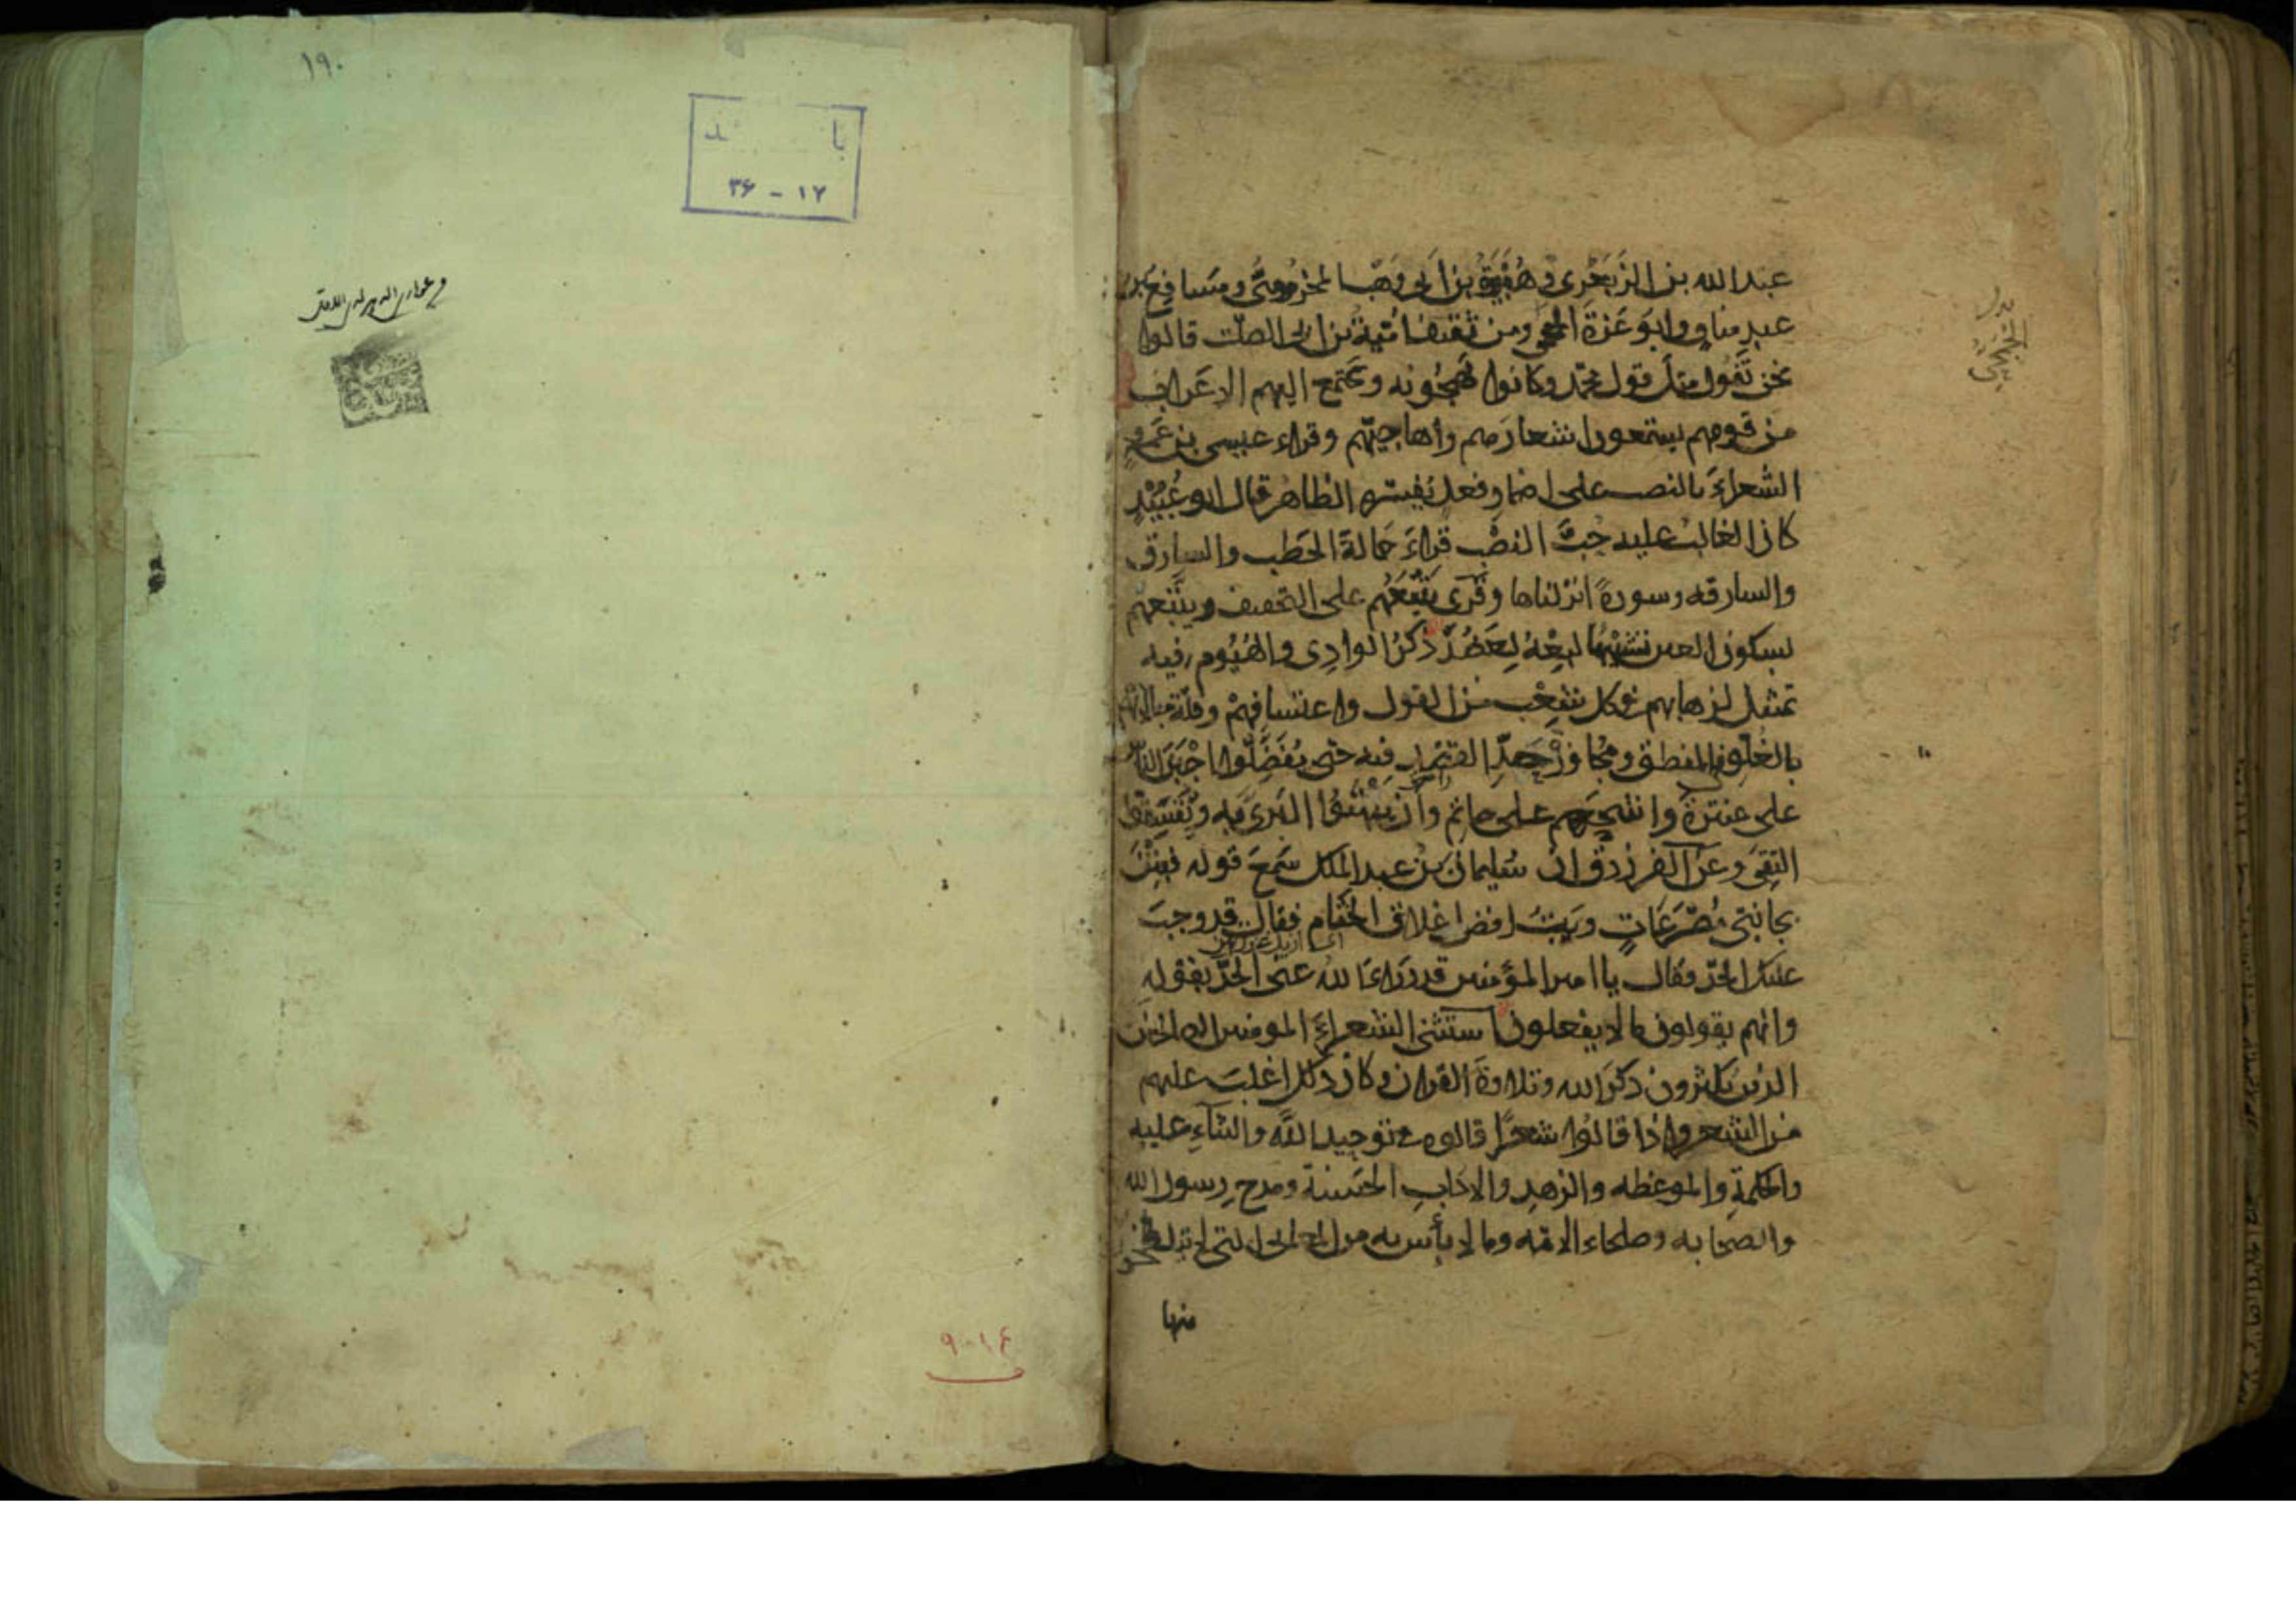 عبد الله بن الزبعرى وهبيرة بن ابى وهب المخزومى ومسافع بن
عبد مناف وابو عزة الجمحى ومن ثقيف امية بن ابى الصلت قالوا
نحن نقول مثل قول محمد وكانوا يهجونه ويجتمع اليهم الاعراب
من قومهم يستمعون اشعارهم واهاجيهم وقراء عيسى بن عمرو
الشعراءَ بالنصب على اضمار فعل يفسره الظاهر قال ابو عبيد
كان الغالب عليه حبّ النصب قراءَ حمالة الحطب والسارق
والسارقه وسورةً انزلناها وقرى يتبعهم على التخفيف ويتبعهم
بسكون العين تشبيها لبعه بعضد ذكر الوادى والهيوم فيه
تمثيل لذهابهم فى كل شعب من القول واعتسافهم وقلة مبالاتهم
بالغلو فى المنطق ومجاوزة حد القصد فيه حتى يفضلوا اجبن الناس
على عنترة واشحهم على حاتم وان يبهتوا البرى فيه ويفسقوا
التقى وعن الفرزدق ان سليمان بن عبد الملك سمع قوله فبتن
بجانبىّ مصرعات وبت افض اغلاق الختام فقال قد وجب
عليك الحدّ فقال يا امير المؤمنين قد دراءَ الله عنى الحدّ بقوله
وانهم يقولون ما لا يفعلون استثنى الشعراءَ المومنين الصالحين
الذين يكثرون ذكر الله وتلاوة القران وكان ذلك اغلب عليهم
من الشعر واذا قالوا شعرًا قالوه فى توحيد الله والثناءِ عليه
والحكمة والموعظه والزهد والاداب الحسنة ومدح رسول الله
والصحابه وصلحاء الامّه وما لا بأس به من المعانى التى لا يتلطخون
منها
الجمحى
١٩٠
با د
١٧ - ٣۶